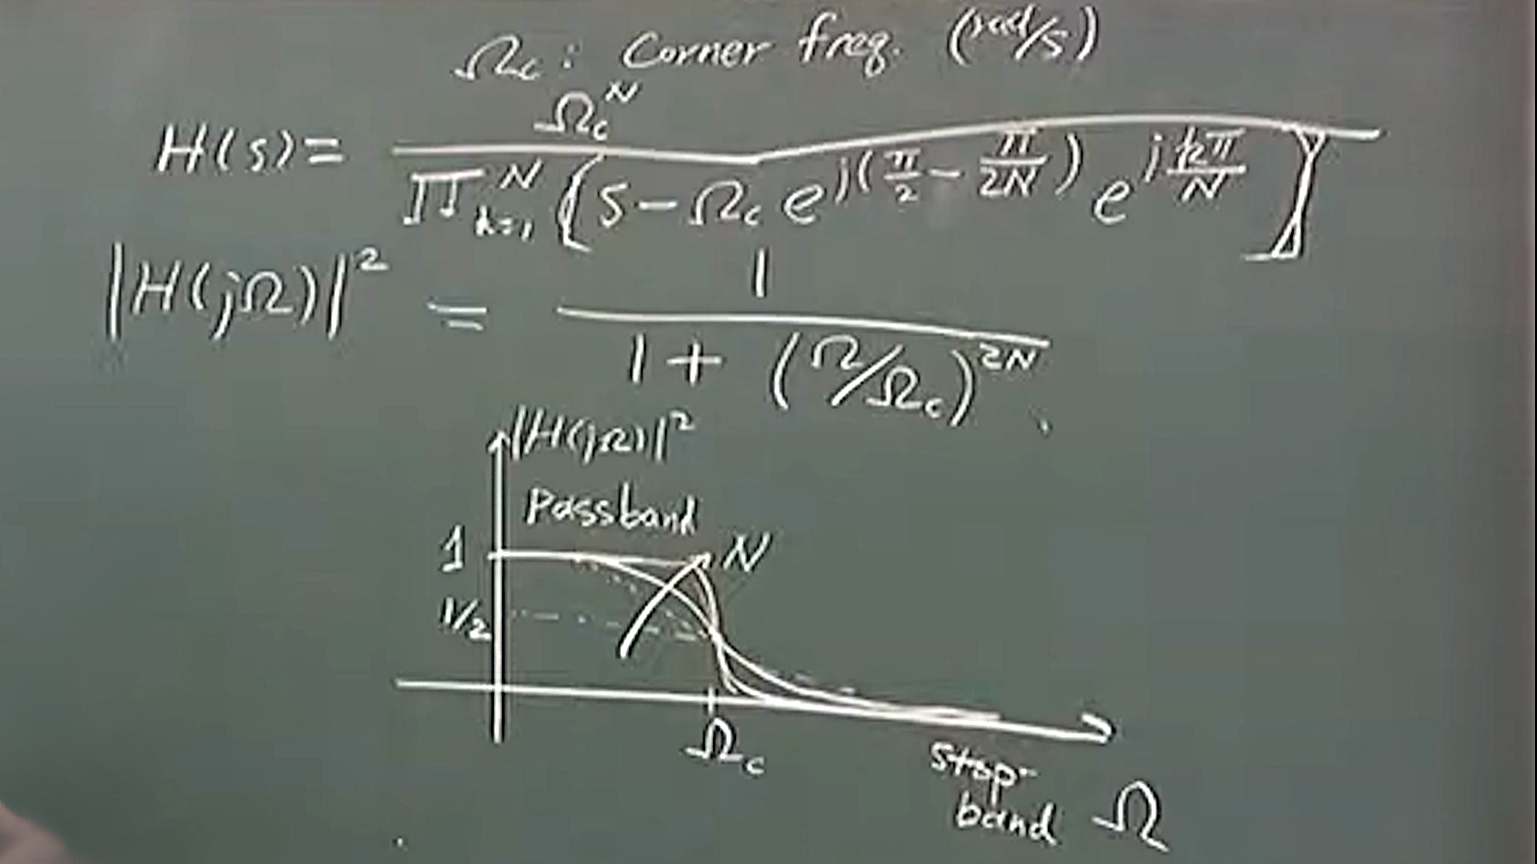 Ω_c : Corner freq. (rad/s)
H(s) = Ω_c^N / ∏_{k=1}^N [s - Ω_c e^{j(π/2 - π/2N)} e^{j kπ/N}]
|H(jΩ)|² = 1 / (1 + (Ω/Ω_c)^{2N})
|H(jΩ)|²
Passband
1
N
1/2
Ω_c
stop-
band
Ω